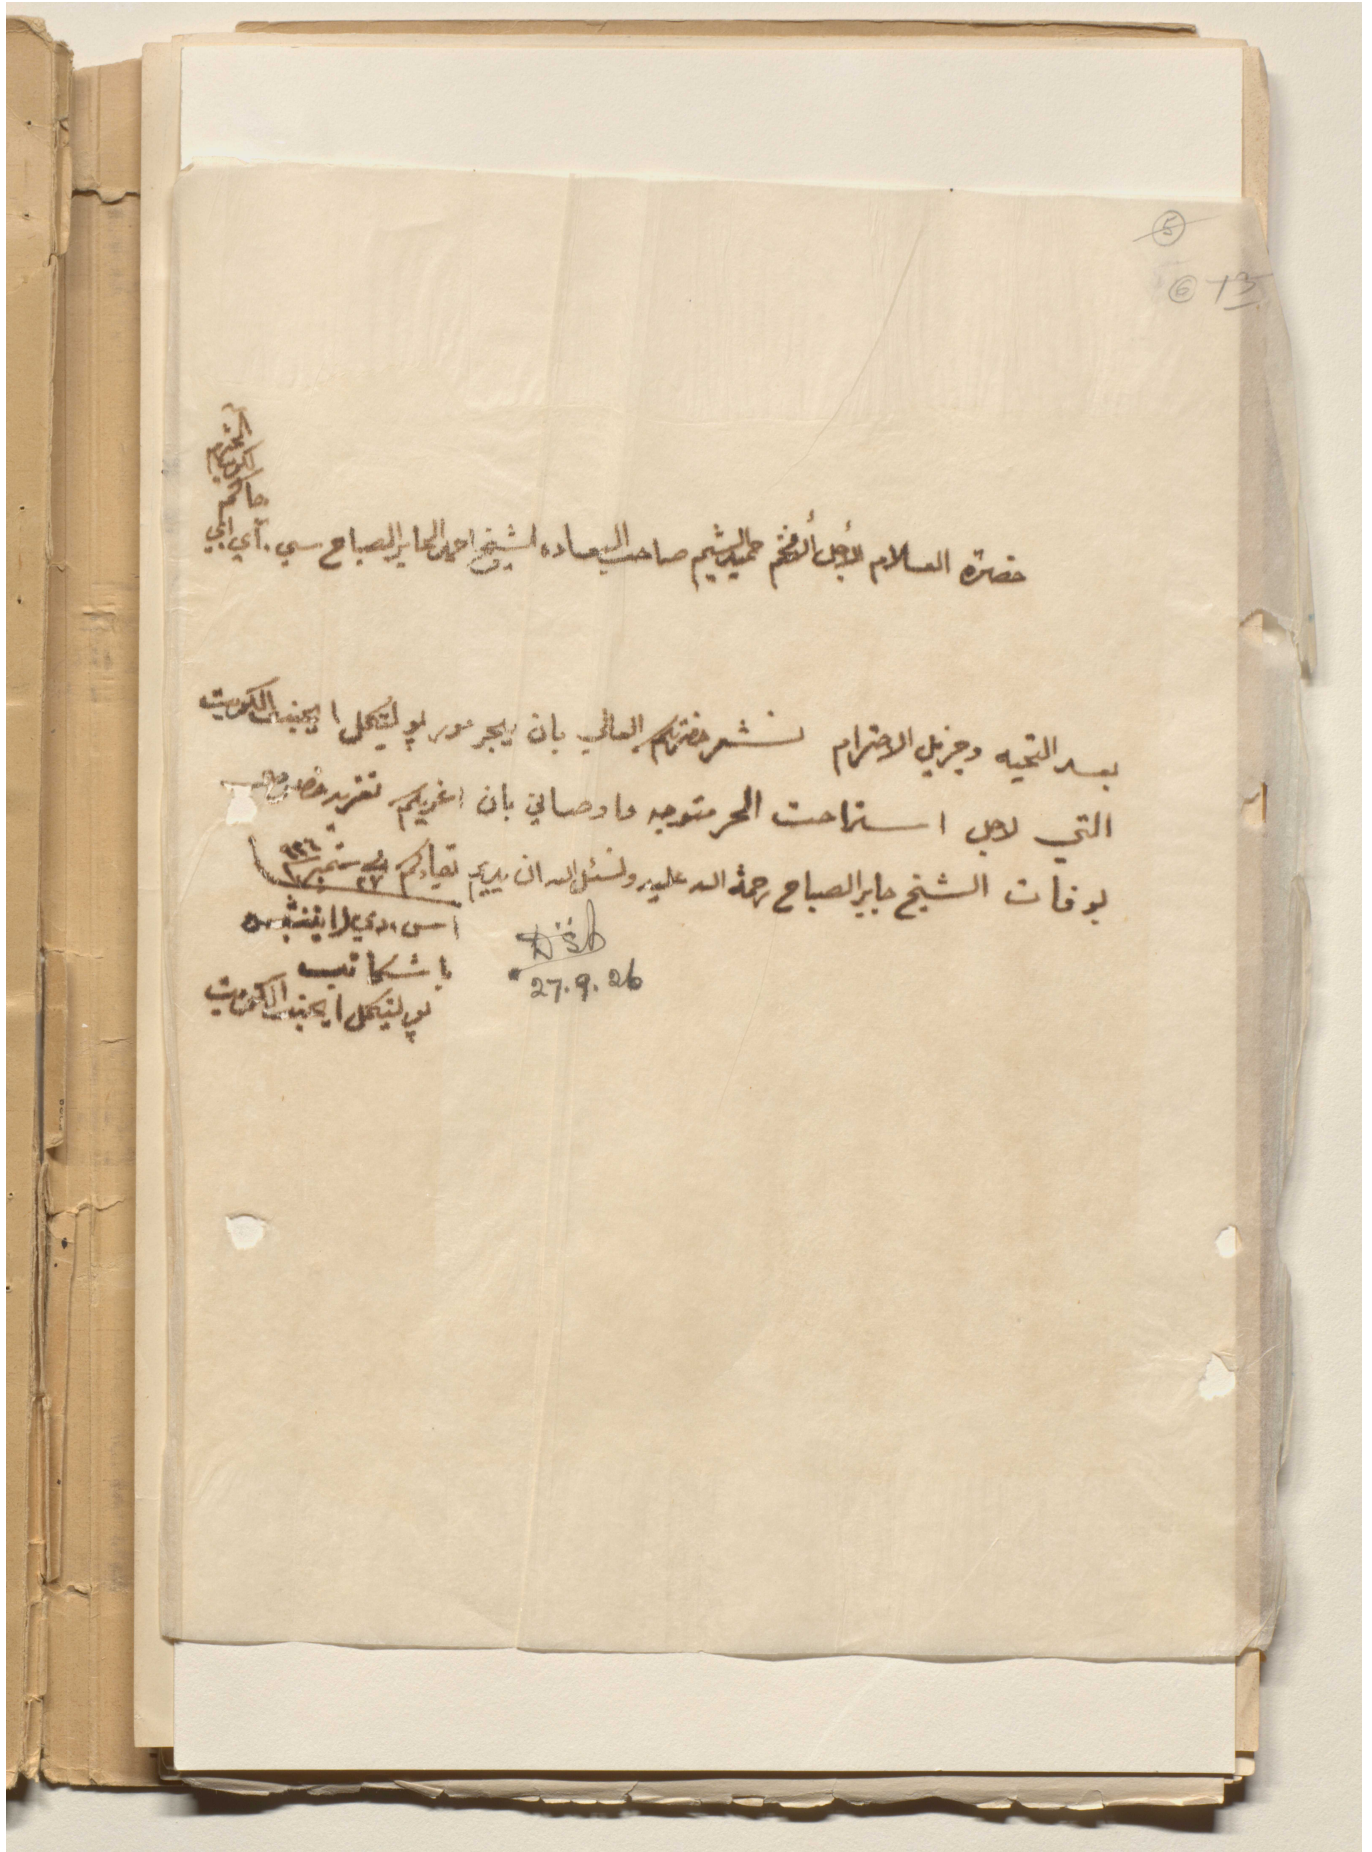 5
6 13
حضرة السلام الأجل الأفخم حميد الشيم صاحب السعاده الشيخ احمد الجابر الصباح سي . آي اي
حاكم
الكويت
المحترم
بعد التحيه وجزيل الاحترام نشعر حضرتكم العالي بان ميجر مور بوليتكل ايجنت الكويت
التي لاجل استراحت الحر متوجه ما وصاني بان اعزيكم تعزيه خصوصي
بوفات الشيخ جابر الصباح رحمة الله عليه ونسئل الله ان يديم بقياكم في ٢٧ ستمبر ٩٢٦
اس . دي
باشكاتب
بوليتكل ايجنت الكويت
27.9.26